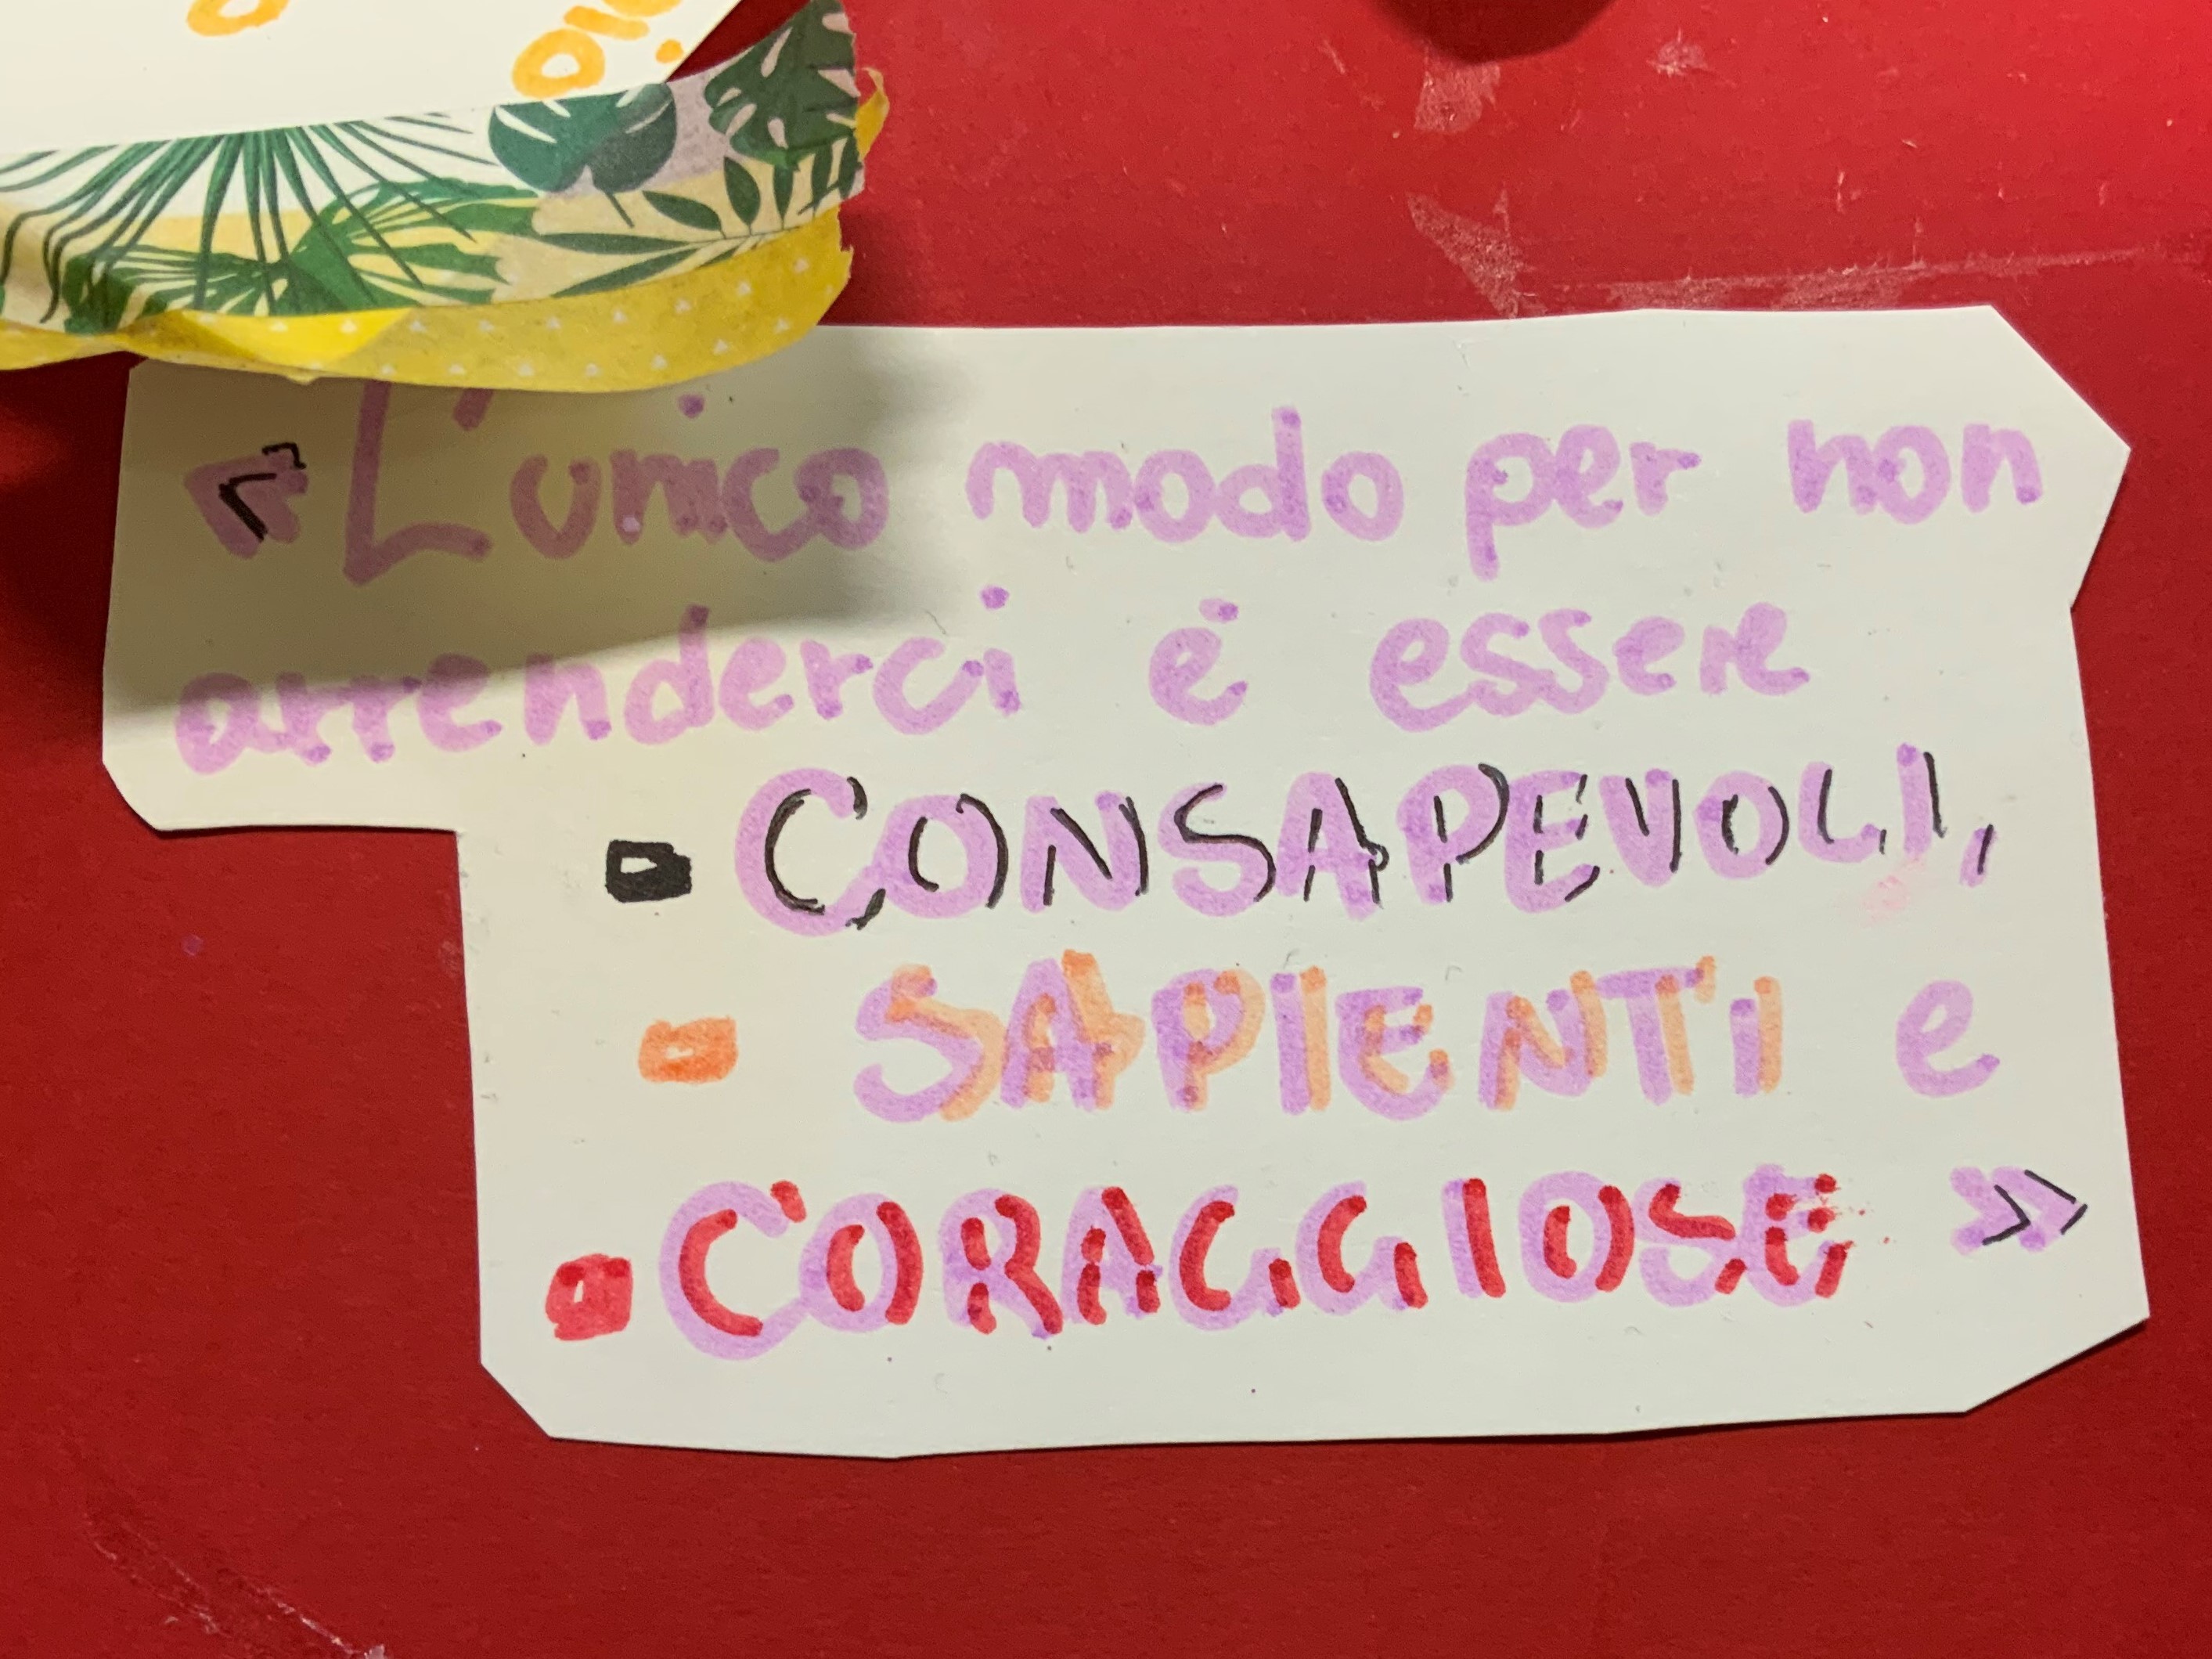 «L'unico modo per non
arrenderci è essere
CONSAPEVOLI,
SAPIENTI e
CORAGGIOSE»